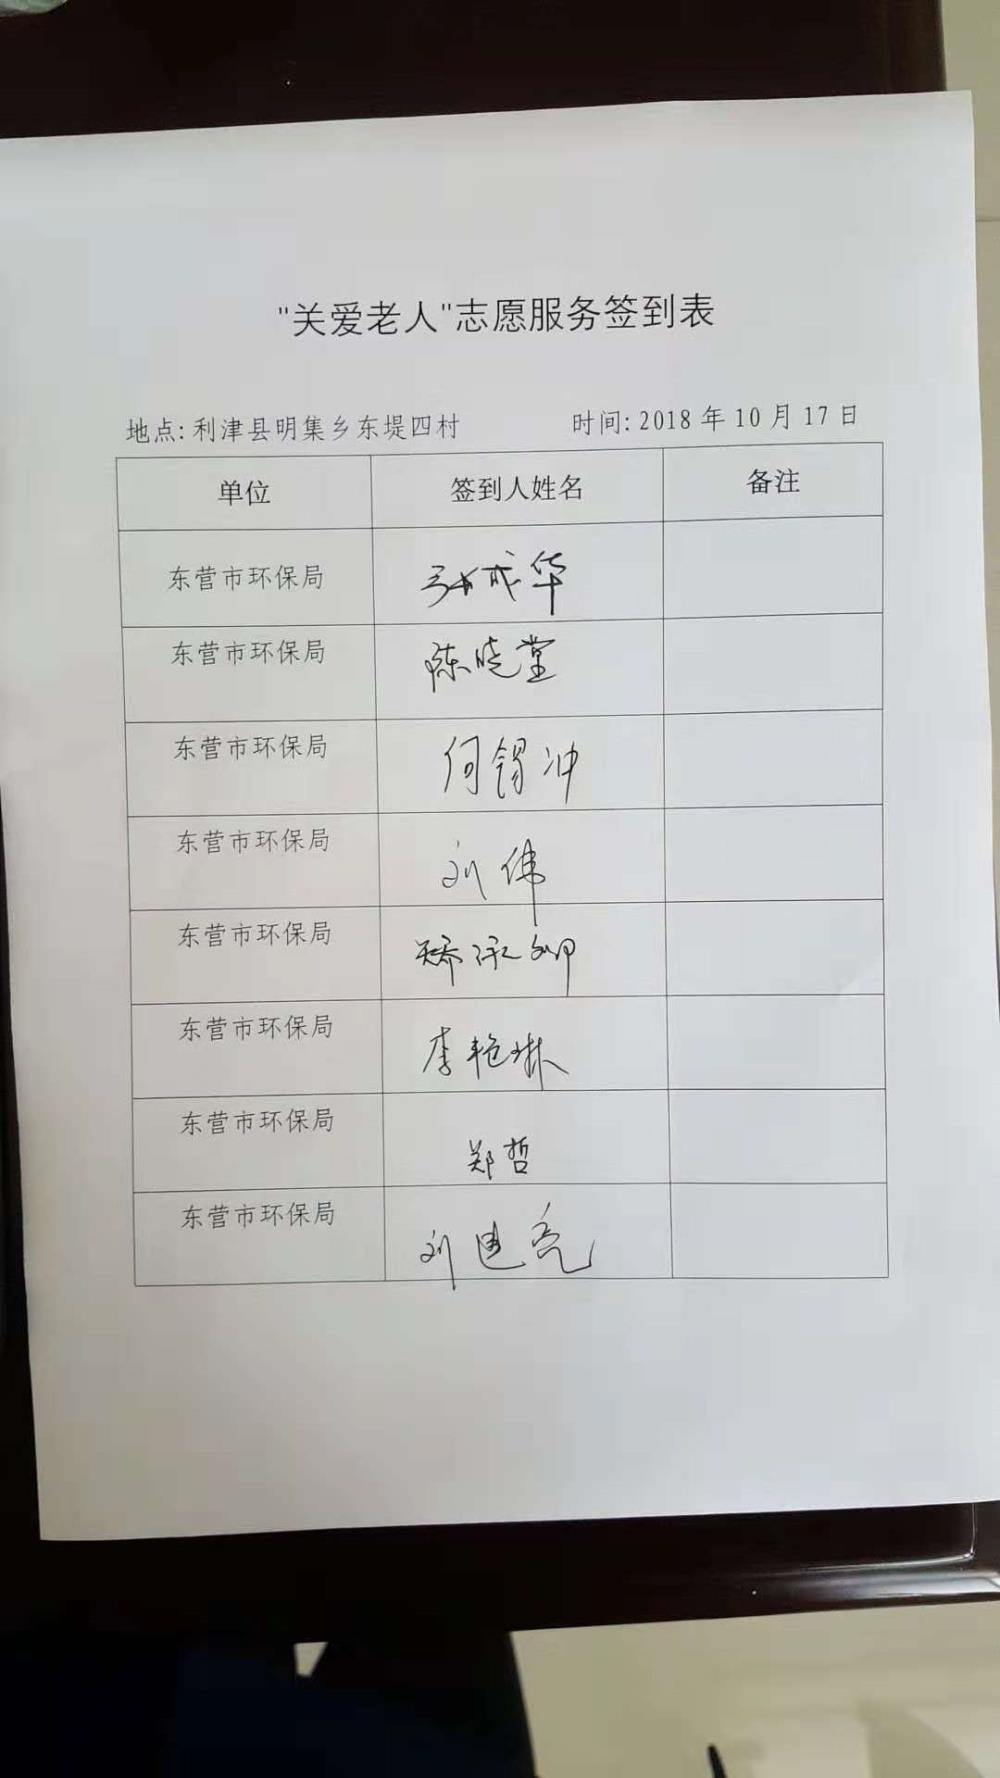 "关爱老人"志愿服务签到表
地点: 利津县明集乡东堤四村 时间: 2018 年 10 月 17 日
单位 签到人姓名 备注
东营市环保局 张成华
东营市环保局 陈晓堂
东营市环保局 何锡冲
东营市环保局 刘伟
东营市环保局
东营市环保局 李艳琳
东营市环保局 郑哲
东营市环保局 刘迪亮